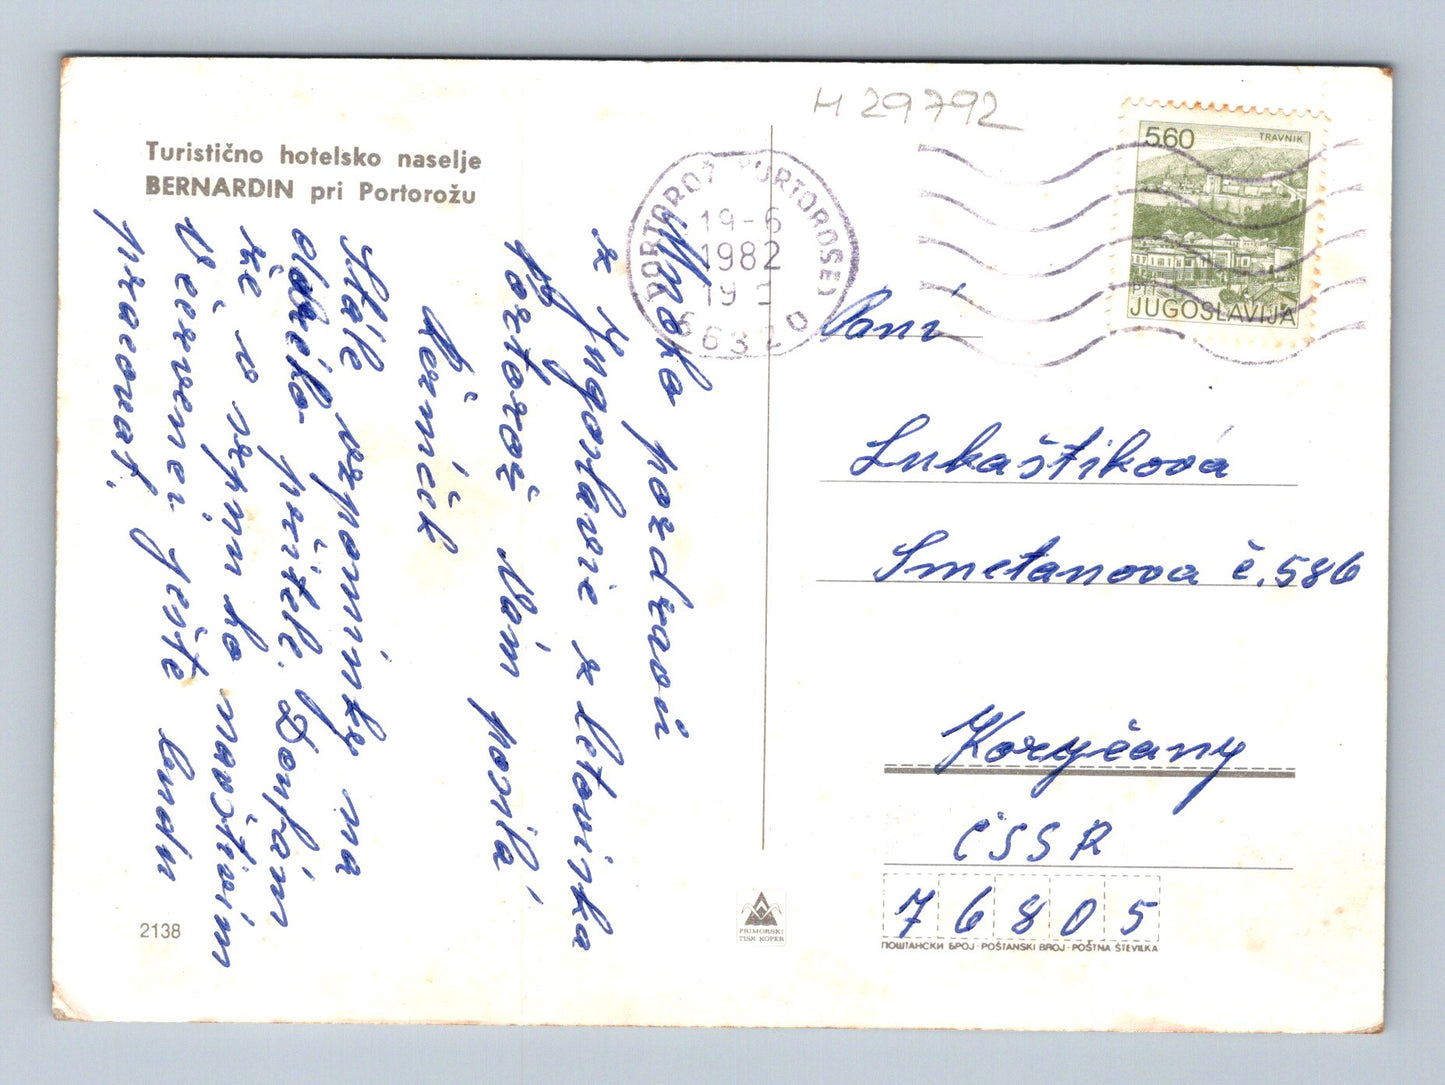 H 29792
Turistično hotelsko naselje
BERNARDIN pri Portorožu
Mnoho pozdravů
z Yugoslavie z letoviska
Portorož Vám posílá
Heřmíček
Stále vzpomínky na
dobré přátele. Doufám
že v srpnu ho navštívím
V červenci ještě budu
pracovat.
PORTOROŽ PORTOROSE
19-6
1982
19
66320
5.60
TRAVNIK
PTT
JUGOSLAVIJA
Paní
Lukaštíková
Smetanova č. 586
Koryčany
ČSSR
76805
ПОШТАНСКИ БРОЈ - POŠTANSKI BROJ - POŠTNA ŠTEVILKA
PRIMORSKI
TISK KOPER
2138